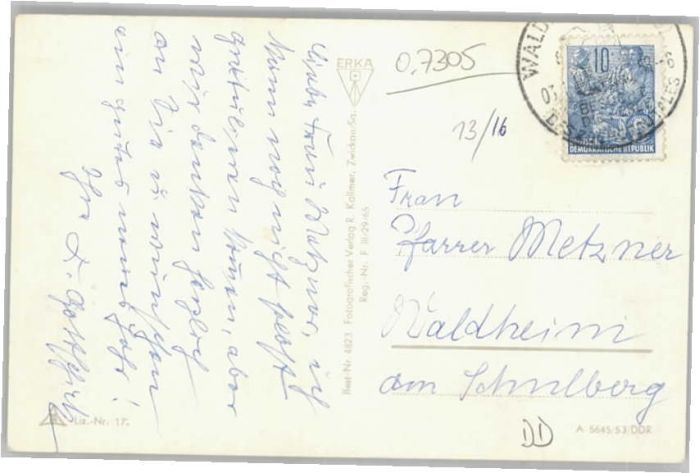 Liebe Frau Metzner, ich
kann noch nicht persönl.
gratulieren kommen, aber
wir denken herzlich
an Sie u. wünschen
ein gutes neues Jahr!
Ihr
ERKA
Best-Nr. 4823 Fotografischer Verlag R. Kallmer, Zwickau/Sa.
Reg.-Nr. F III/29/65
Liz.-Nr. 17
0,7305
13/16
WALD
10
DEMOKRATISCHE REPUBLIK
Frau
Pfarrer Metzner
Waldheim
am Schulberg
DD
A 5645/53/DDR